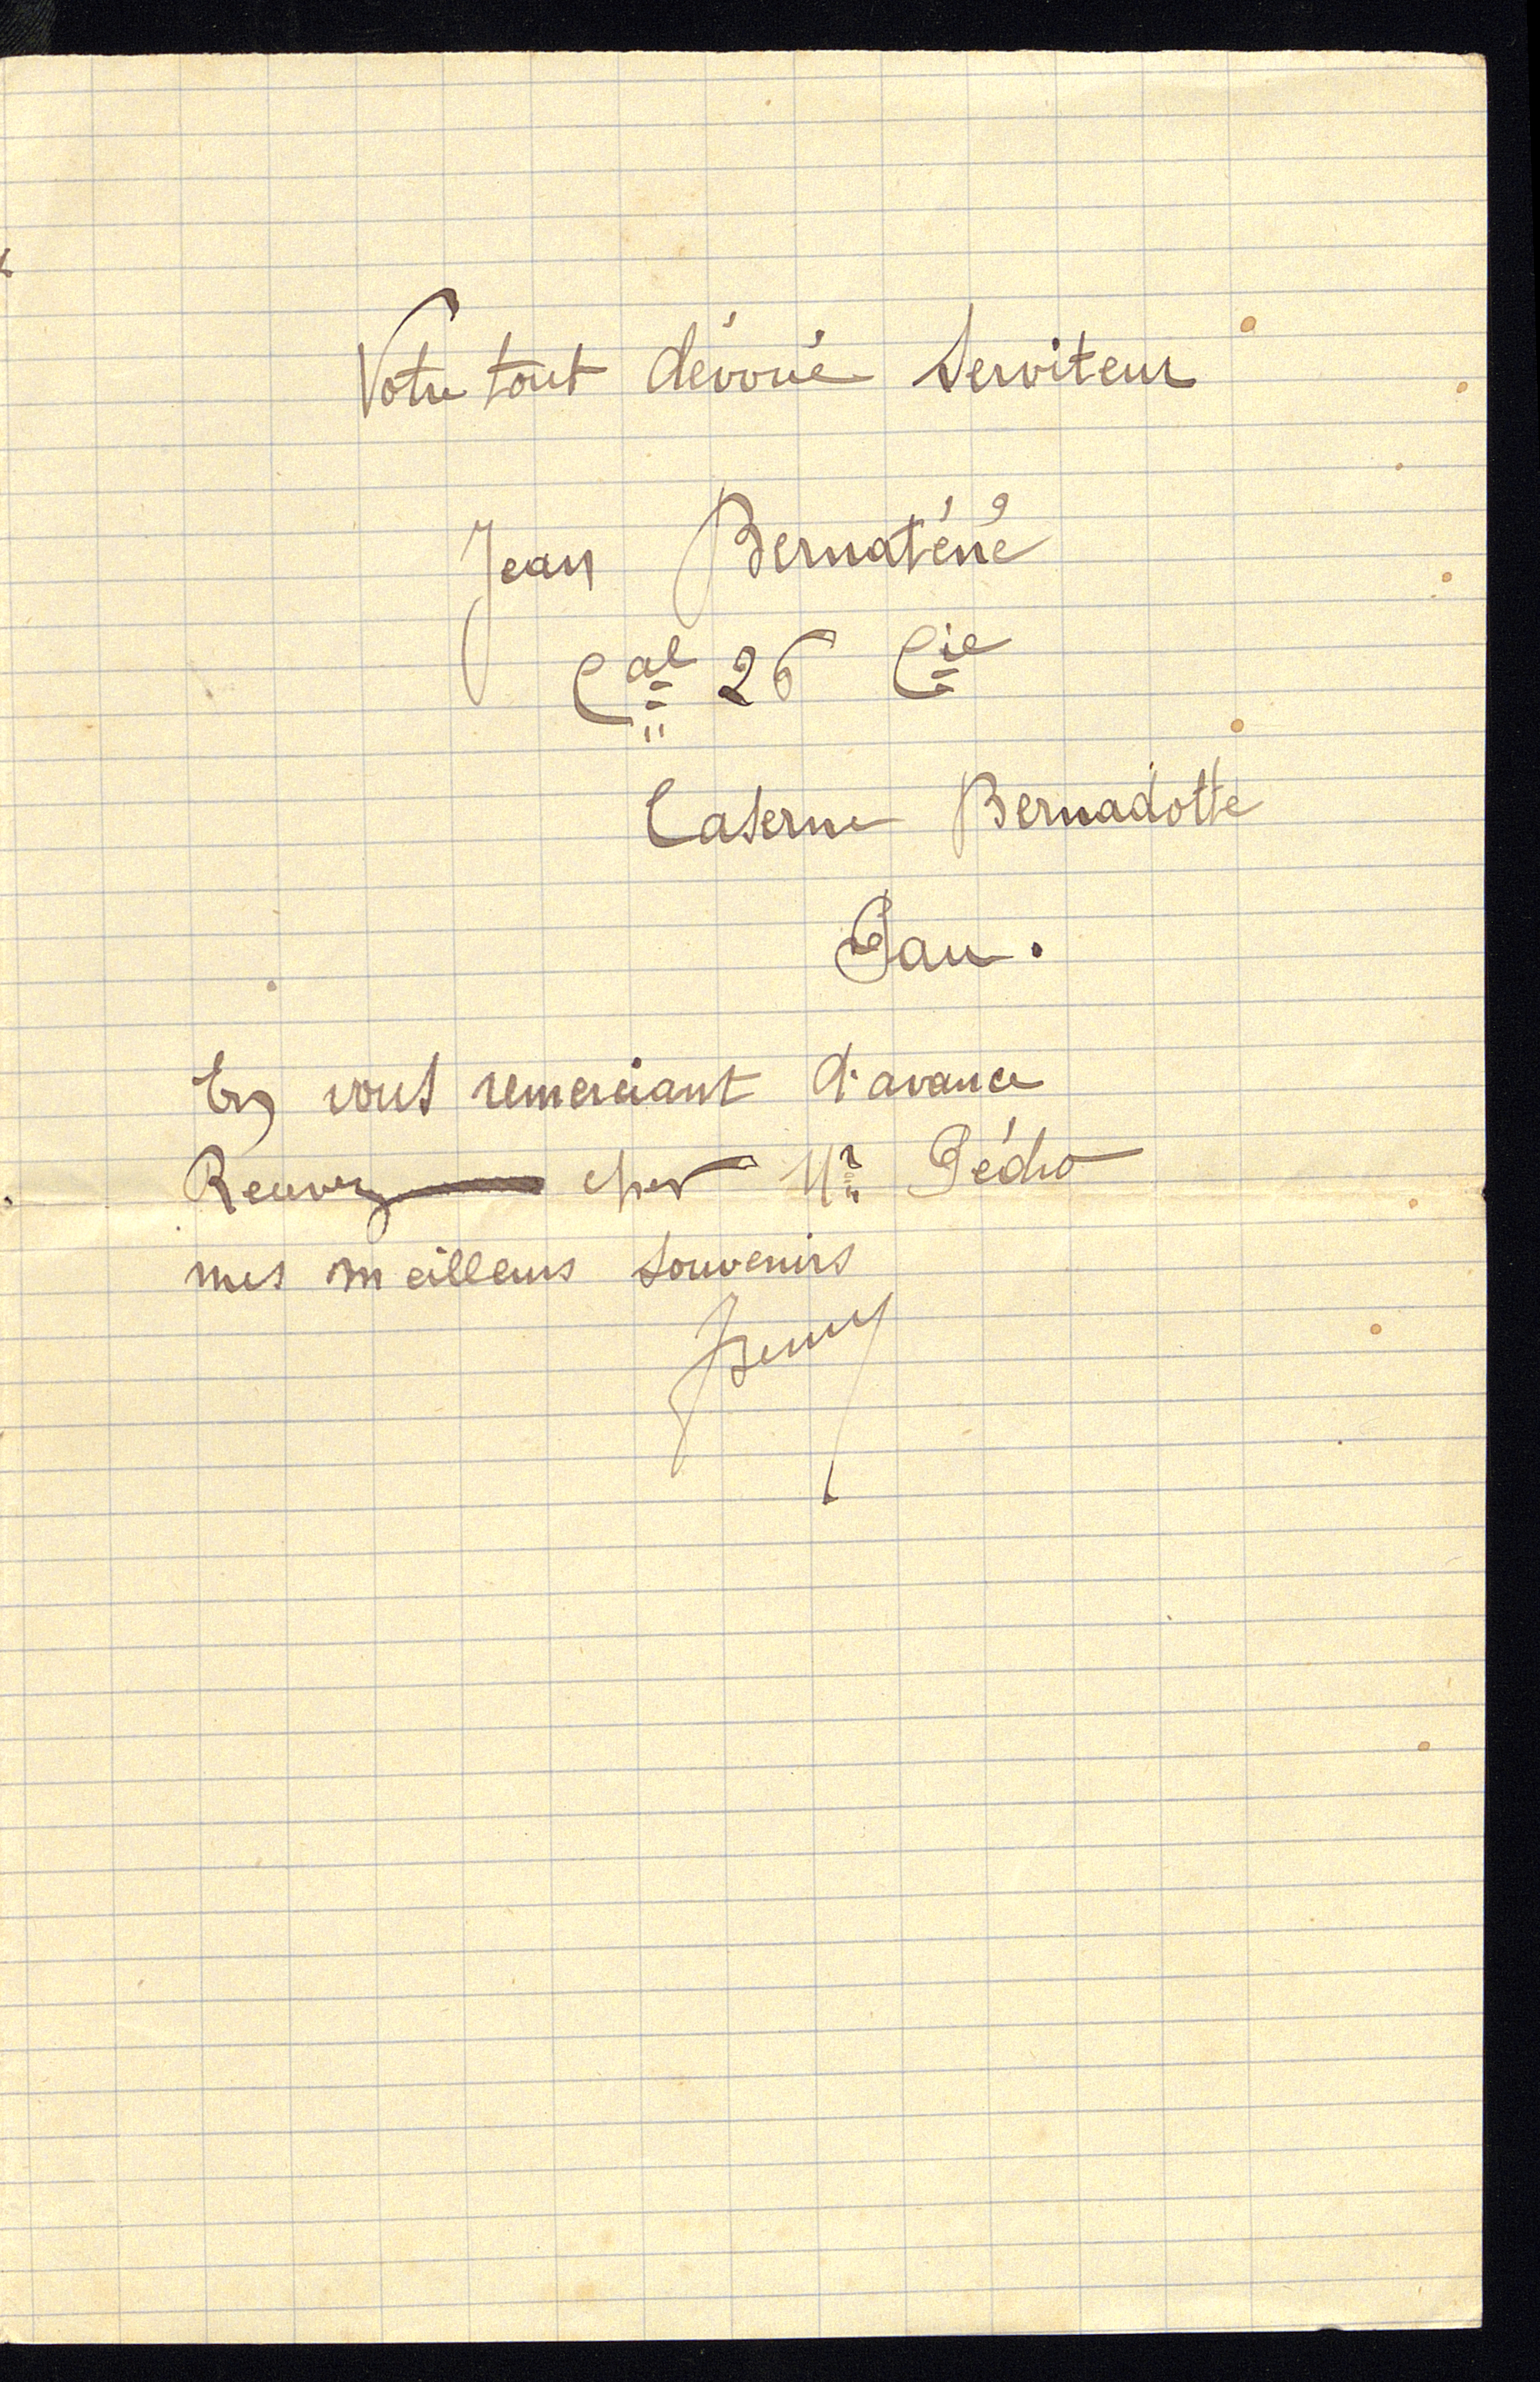 Votre tout dévoué Serviteur
Jean Bernaténé
Cal 26 Cie
Caserne Bernadotte
Pau.
En vous remerciant d'avance
Recevez cher Mr Pédro
mes meilleurs Souvenirs